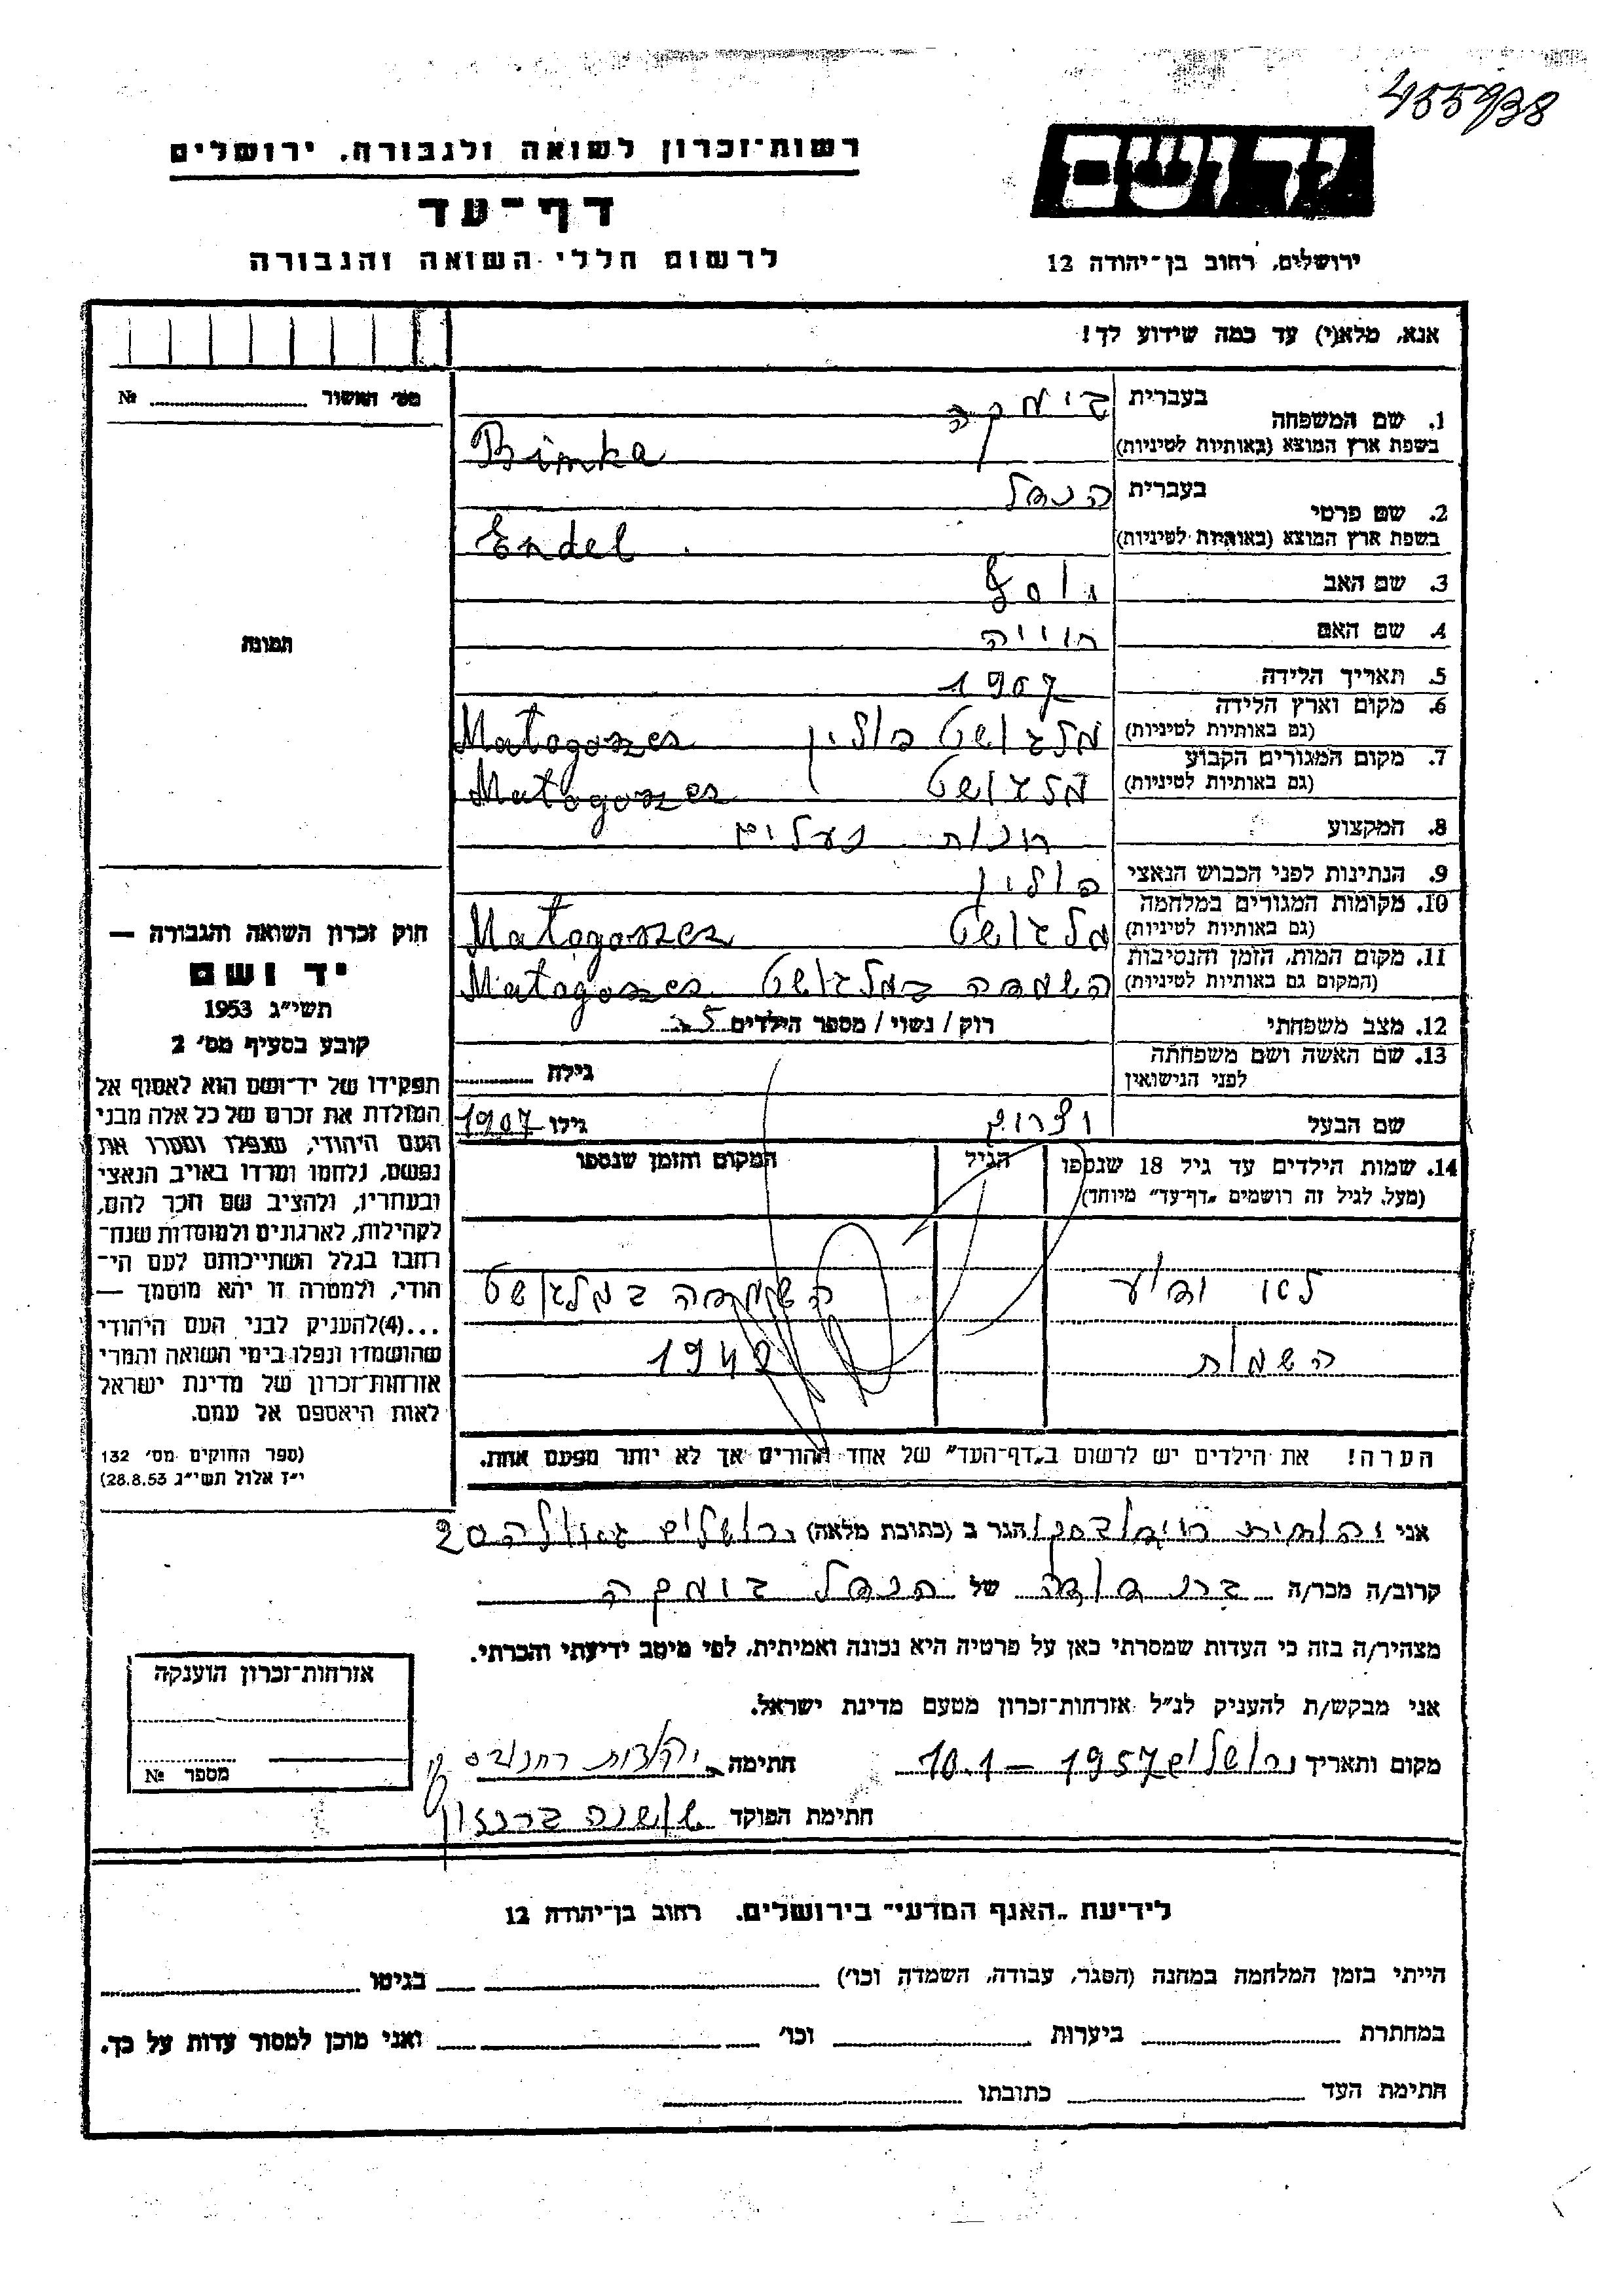 455938
רשות־זכרון לשואה ולגבורה, ירושלים
דף־עד
לרשום חללי השואה והגבורה
יד ושם
ירושלים, רחוב בן־יהודה 12
אנא, מלא(י) עד כמה שידוע לך!
מס׳ האשור № 
1. שם המשפחה בעברית בימקה
בשפת ארץ המוצא (באותיות לטיניות) Bimka
2. שם פרטי בעברית הנדל
בשפת ארץ המוצא (באותיות לטיניות) Endel
3. שם האב יוסף
4. שם האם חוויה
5. תאריך הלידה 1907
6. מקום וארץ הלידה
(גם באותיות לטיניות) מלגושט פולין Matogoszes
7. מקום המגורים הקבוע
(גם באותיות לטיניות) מלגושט Matogoszes
8. המקצוע חנות נעלים
9. הנתינות לפני הכבוש הנאצי פולין
10. מקומות המגורים במלחמה
(גם באותיות לטיניות) מלגושט Matogoszes
11. מקום המות, הזמן והנסיבות
(המקום גם באותיות לטיניות) השמדה במלגושט Matogoszes
12. מצב משפחתי רוק / נשוי / מספר הילדים 5
13. שם האשה ושם משפחתה
לפני הנישואין גילה
שם הבעל גילו 1907
14. שמות הילדים עד גיל 18 שנספו הגיל המקום והזמן שנספו
(מעל לגיל זה רושמים „דף־עד״ מיוחד)
לא השמדה במלגושט
השמות 1942
הערה! את הילדים יש לרשום ב„דף־העד״ של אחד ההורים אך לא יותר מפעם אחת.
תמונה
חוק זכרון השואה והגבורה —
יד ושם
תשי״ג 1953
קובע בסעיף מס׳ 2
תפקידו של יד־ושם הוא לאסוף אל
המולדת את זכרם של כל אלה מבני
העם היהודי, שנפלו ומסרו את
נפשם, נלחמו ומרדו באויב הנאצי
ובעוזריו, ולהציב שם וזכר להם,
לקהילות, לארגונים ולמוסדות שנח־
רבו בגלל השתייכותם לעם הי־
הודי, ולמטרה זו יהא מוסמך —
...(4) להעניק לבני העם היהודי
שהושמדו ונפלו בימי השואה והמרי
אזרחות־זכרון של מדינת ישראל
לאות היאספם אל עמם.
(ספר החוקים מס׳ 132
י״ז אלול תשי״ג 28.8.53)
אני הגר ב (כתובת מלאה) ירושלים גאולה 20
קרוב/ה מכר/ה בת דודה של הנדל בומקה
מצהיר/ה בזה כי העדות שמסרתי כאן על פרטיה היא נכונה ואמיתית, לפי מיטב ידיעתי והכרתי.
אני מבקש/ת להעניק לנ״ל אזרחות־זכרון מטעם מדינת ישראל.
מקום ותאריך ירושלים 10.1 – 1957 חתימה
חתימת הפוקד שושנה
אזרחות־זכרון הוענקה
מספר №
לידיעת „האגף המדעי״ בירושלים, רחוב בן־יהודה 12
הייתי בזמן המלחמה במחנה (הסגר, עבודה, השמדה וכו׳) בגיטו
במחתרת ביערות וכו׳ ואני מוכן למסור עדות על כך.
חתימת העד כתובתו